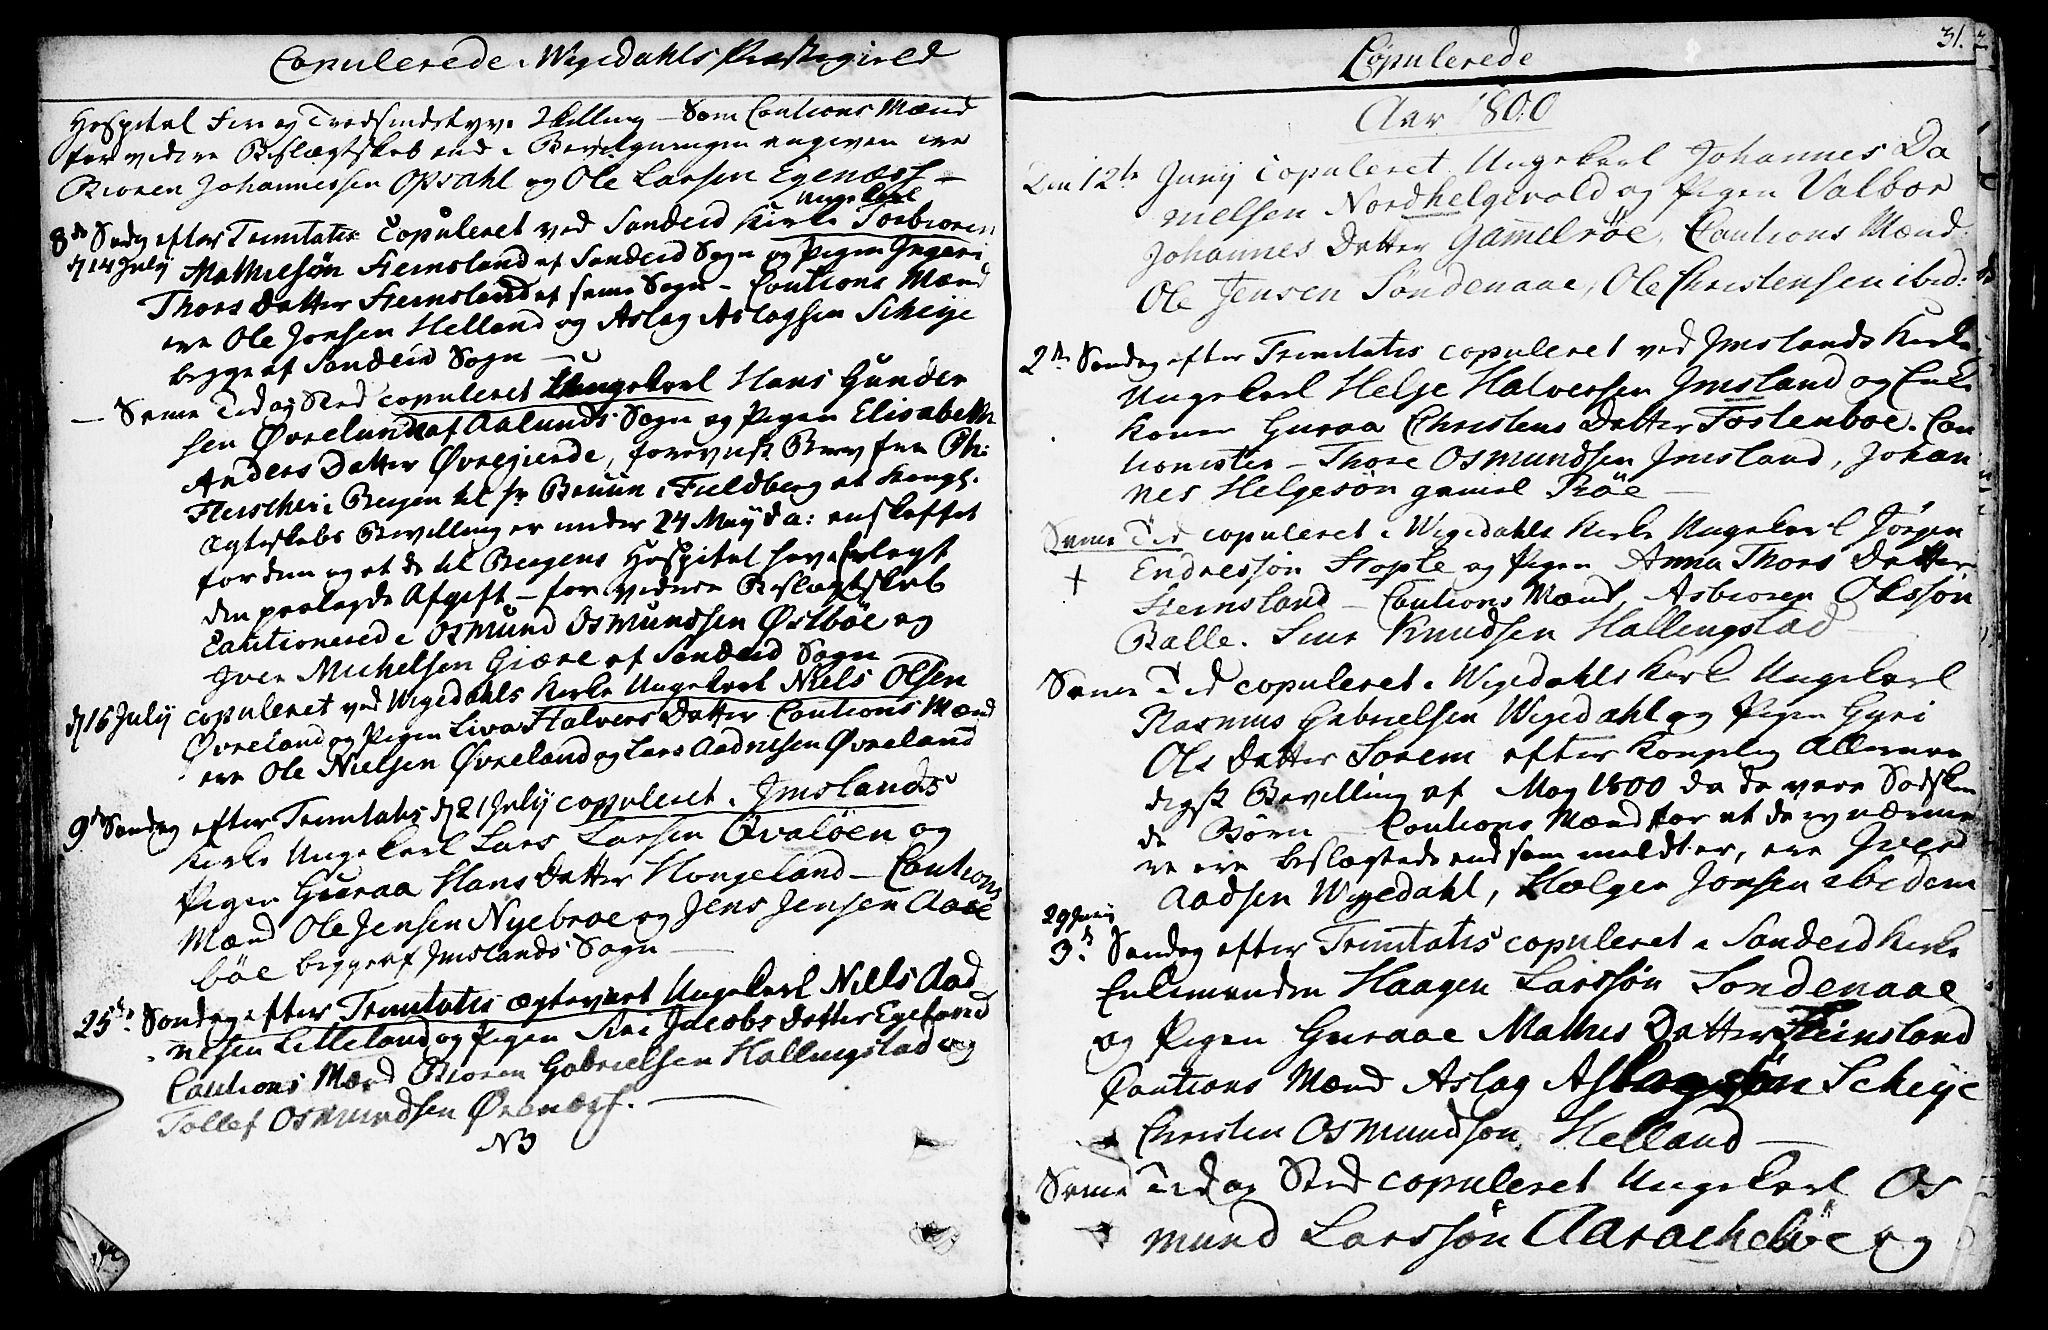 Copulerede i Wigedahls Præstegield
Hospital Fire og Tredsindstyve Skilling – Som Cautions Mænd
for videre Beslægtskab end i Bevilgningen angiven ere
Bioren Johannessen Opsahl og Ole Larsen Egenæss –
8de Søndag efter Trinitatis Copuleret ved Sandeid Kirke Ungekarl Torbioren
d 14 July Mathiesøn Steinsland af Sandeid Sogn og Pigen Ingeri
Thors Datter Steinsland af samme Sogn – Cautions Mænd
ere Ole Jonsen Helland og Aslag Aslagsen Scheije
begge af Sandeid Sogn –
– Samme Tid og Sted copuleret Ungekarl Hans Gunder
sen Øvrelund af Aalunds Sogn og Pigen Elisabeth
Anders Datter Øvregierde, foreviist Brev fra Ph:
Fleischer i Bergen til Hr Bruun i Fuldberg at Kongl.
Ægteskabs Bevilling er under 24 May d a: udskaffet
for dem og at de til Bergens Hospital have Erlagt
den paalagde Afgift – for videre Beslægtskab
Cautionerede Osmund Osmundsen Østbøe og
Iver Michelsen Giære af Sandeid Sogn
d 16 July copuleret ved Wigedahls Kirke Ungekarl Niels Olsen
Øvreland og Pigen Liva Halvors Datter Cautions Mænd
ere Ole Nielsen Øvreland og Lars Aadnesen Øvreland
9de Søndag efter Trinitatis d 21 July copuleret i Imslands
Kirke Ungekarl Lars Larsen Qvaløen og
Pigen Guraa Hans Datter Hongeland – Cautions
Mænd Ole Jensen Nyebroe og Jens Jensen Aase
bøe begge af Imslands Sogn –
25de Søndag efter Trinitatis ægteviet Ungekarl Niels Aad
nesen Litleland og Pigen Siri Jacobs Datter
Cautions Mænd Bioren Gabrielsen Hallingstad og
Tollef Osmundsen Ørenæss. –
NB
31.
Copulerede
Aar 1800
Den 12te Juny copuleret Ungekarl Johannes Da
nielsen Nordhelgevold og Pigen Valbor
Johannes Datter Gamelrøe, Cautions Mænd
Ole Jensen Søndenaae, Ole Christensen ibid:
2de Søndag efter Trinitatis copuleret ved Imslands Kirke
Ungekarl Helje Halvorsen Imsland og Enke
Konen Guraa Christens Datter Tostenboe. Cau
tionister – Thore Osmundsen Imsland, Johan
nes Helgesøn gamel Røe –
Samme Tid copuleret i Wigedahls Kirke Ungekarl Jørgen
+ Endresson Stople og Pigen Anna Thors Datter
Steinsland – Cautions Mænd, Asbioren Olssøn
Balle. Knudsen Hallingstad –
Samme Tid copuleret i Wigedahls Kirke Ungekarl
Rasmus Gabrielsen Wigedahl og Pigen Gyri
Ols Datter Sørem efter Kongelig Allernaa
digst Bevilling af May 1800 da de vare Sødsken
de Børn – Cautions Mænd for at de ey nærme
re ere beslægtede end som meldt er, ere Iver
Aadsen Wigedahl, Hælgen Jonsen ibidem
29 Juny
3de Søndag efter Trinitatis copuleret i Sandeid Kirke
Enkemanden Haagen Larssøn Søndenaae
og Pigen Guraae Mathis Datter Steinsland
Cautions Mænd Aslag Aslagssøn Scheije
Christen Osmundsøn Helland –
Samme Tid og Sted copuleret Ungekarl Os
mund Larssøn og